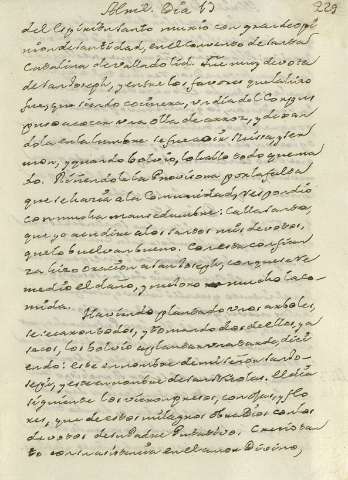 Abril. Dia 13 229
del legitimo santo murio con grande opi
nion de santidad, en el convento de santa
Catalina de valladolid. Fue muy devota
de san Joseph, y entre los favores que la hizo
fue, que siendo cocinera, un dia del Corpus
puso a cocer una olla de arroz, y dexan
dola en la lumbre se fue a oir Missa, y ser
mon, y quando bolvio, lo hallo todo quema
do. Riñendola la Provisora por la falta,
que se haria a la Comunidad, respondio
con mucha mansedumbre: Calla santo,
que yo a endire a los santos mis devotos,
que lo buelvan bueno. Con esta confian
za hizo oracion a san Joseph, con que se re
medio el daño, y mejoro mucho la co
mida.
Haviendo plantado unos arboles,
se secaron todos, y tomando dos de ellos, ya
secos, los bolvio a plantar una tarde, dici
endo: este en nombre de mi señor san Jo
seph, y este en nombre de san Nicolas. El dia
siguiente los vieron presos, con ojas, y flo
res, que de estos milagros obra Dios con los
devotos de su Padre Putativo.
to con instancia en el amor Divino,